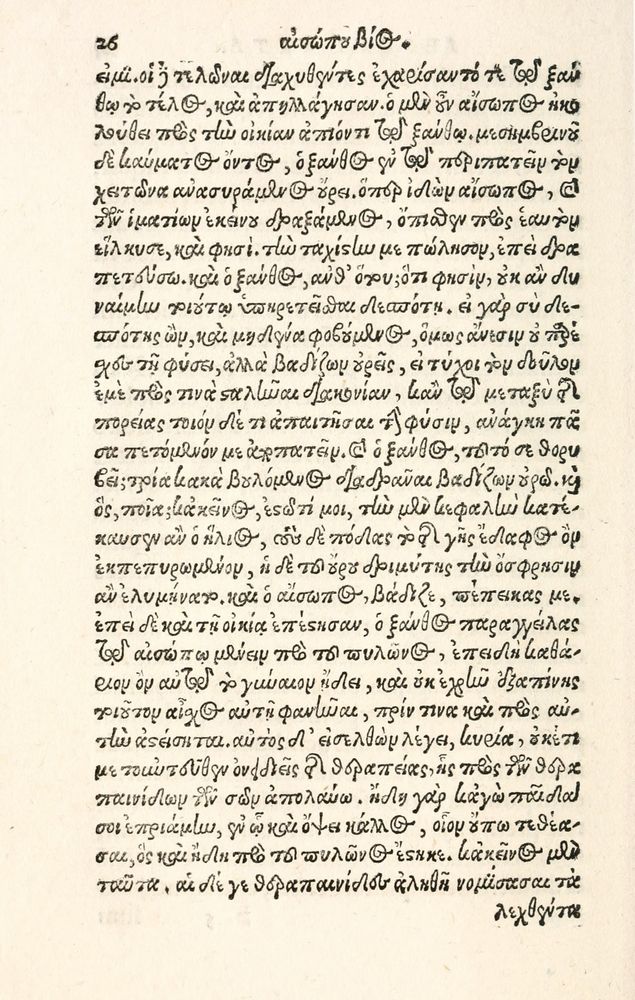 26 αἰσώπου βίος.
εἰμί. οἱ δὲ τελῶναι διαχυθέντες ἐχαρίσαντό τε τῷ ξάν
θῳ τὸ τέλος, καὶ ἀπηλλάγησαν. ὁ μὲν οὖν αἴσωπος ἠκο
λούθει πρὸς τὴν οἰκίαν ἀπιόντι τῷ ξάνθῳ. μεσημβρινοῦ
δὲ καύματος ὄντος, ὁ ξάνθος ἐν τῷ περιπατεῖν τὸν
χειτῶνα ἀνασυράμενος οὔρει. ὅπερ ἰδὼν αἴσωπος, καὶ
τῶν ἱματίων ἐκείνου δραξάμενος, ὄπισθεν πρὸς ἑαυτὸν
εἵλκυσε, καὶ φησί. τὴν ταχίστην με πώλησον, ἐπεὶ δρα
πετεύσω. καὶ ὁ ξάνθος, ἀνθ' ὅτου; ὅτι φησὶν, οὐκ ἂν δυ
ναίμην τοιούτῳ ὑπηρετεῖσθαι δεσπότῃ. εἰ γὰρ σὺ δε-
σπότης ὢν, καὶ μηδένα φοβούμενος, ὅμως ἄνεσιν οὐ παρέ
χου τῇ φύσει, ἀλλὰ βαδίζων οὐρεῖς, εἰ τύχοι τὸν δοῦλον
ἐμὲ πρός τινα σταλῆναι διακονίαν, κἂν τῷ μεταξὺ τῆς
πορείας τοιόνδε τι ἀπαιτῆσαι τὴν φύσιν, ἀνάγκη πᾶ
σα πετόμενόν με ἀποπατεῖν. καὶ ὁ ξάνθος, τοῦτό σε θορυ
βεῖ; τρία κακὰ βουλόμενος διαδρᾶναι βαδίζων οὐρῶ. καὶ
ὃς, ποῖα; κἀκεῖνος, ἑστῶτί μοι, τὴν μὲν κεφαλὴν κατέ-
καυσεν ἂν ὁ ἥλιος, τοὺς δὲ πόδας τὸ τῆς γῆς ἔδαφος ὂν
ἐκπεπυρωμένον, ἡ δὲ τοῦ οὔρου δριμύτης τὴν ὄσφρησιν
ἂν ἐλυμήνατο. καὶ ὁ αἴσωπος, βάδιζε, πέπεικας με.
ἐπεὶ δὲ καὶ τῇ οἰκίᾳ ἐπέστησαν, ὁ ξάνθος παραγγείλας
τῷ αἰσώπῳ μένειν πρὸ τοῦ πυλῶνος, ἐπειδὴ καθά-
ριον ὂν αὐτῷ τὸ γύναιον ᾔδει, καὶ οὐκ ἐχρῆν ἐξαπίνης
τοιοῦτον αἶσχος αὐτῇ φανῆναι, πρίν τινα καὶ πρὸς αὐ-
τὴν ἀστείσηται. αὐτὸς δ' εἰσελθὼν λέγει, κυρία, οὐκέτι
με τοὐντεῦθεν ὀνειδιεῖς τῆς θεραπείας, ἧς πρὸς τῶν θερα
παινίδων τῶν σῶν ἀπολαύω. ἤδη γὰρ κἀγὼ παῖδά
σοι ἐπριάμην, ἐν ᾧ καὶ ὄψει κάλλος, οἷον οὔπω τεθέα-
σαι, ὃς καὶ ἤδη πρὸ τοῦ πυλῶνος ἕστηκε. κἀκεῖνος μὲν
ταῦτα. αἱ δέ γε θεραπαινίδες ἀληθῆ νομίσασαι τὰ
λεχθέντα